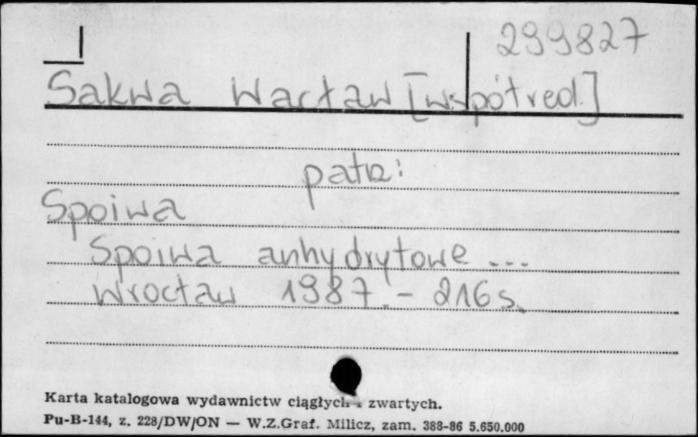 299827
Sakwa Wacław [współred.]
patrz:
Spoiwa
Spoiwa anhydrytowe ...
Wrocław 1987. - 216 s.
Karta katalogowa wydawnictw ciągłych i zwartych.
Pu-B-144, z. 228/DW/ON — W.Z.Graf. Milicz, zam. 388-86 5.650.000